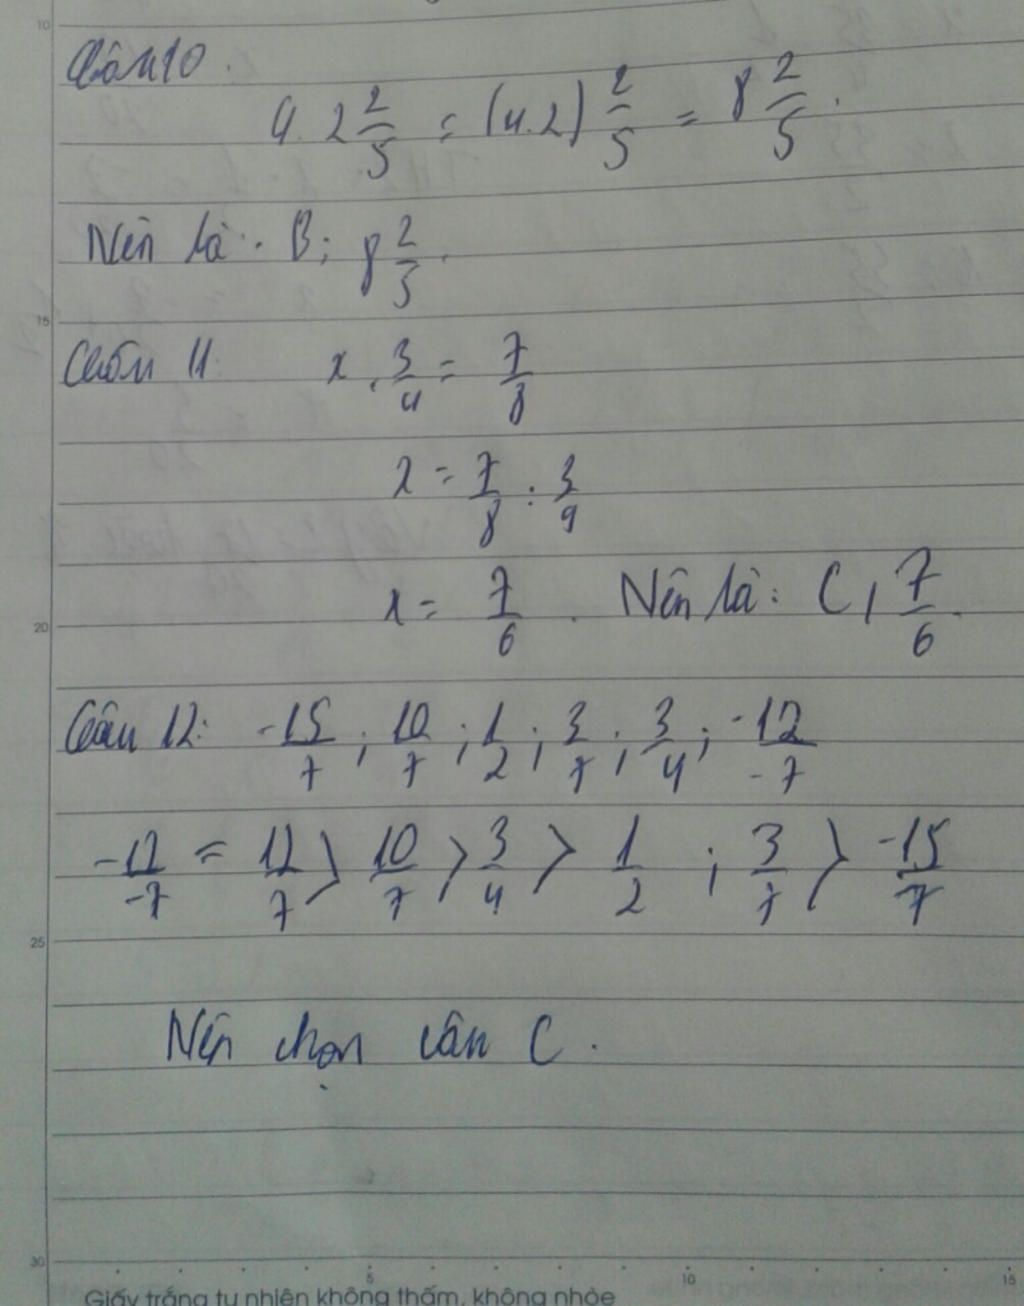 10
Câu 10.
4. 2 2/5 = (4.2) 2/5 = 8 2/5.
Nên là: B; 8 2/5.
15
Câu 11 x. 3/4 = 7/8
x = 7/8 : 3/4
20
x = 7/6. Nên là: C, 7/6.
Câu 12: -15/7; 10/7; 1/2; 3/7; 3/4; -12/-7
-12/-7 = 12/7 > 10/7 > 3/4 > 1/2; 3/7 > -15/7
25
Nên chọn câu C.
30
5 10 15
Giấy trắng tự nhiên không thấm, không nhòe